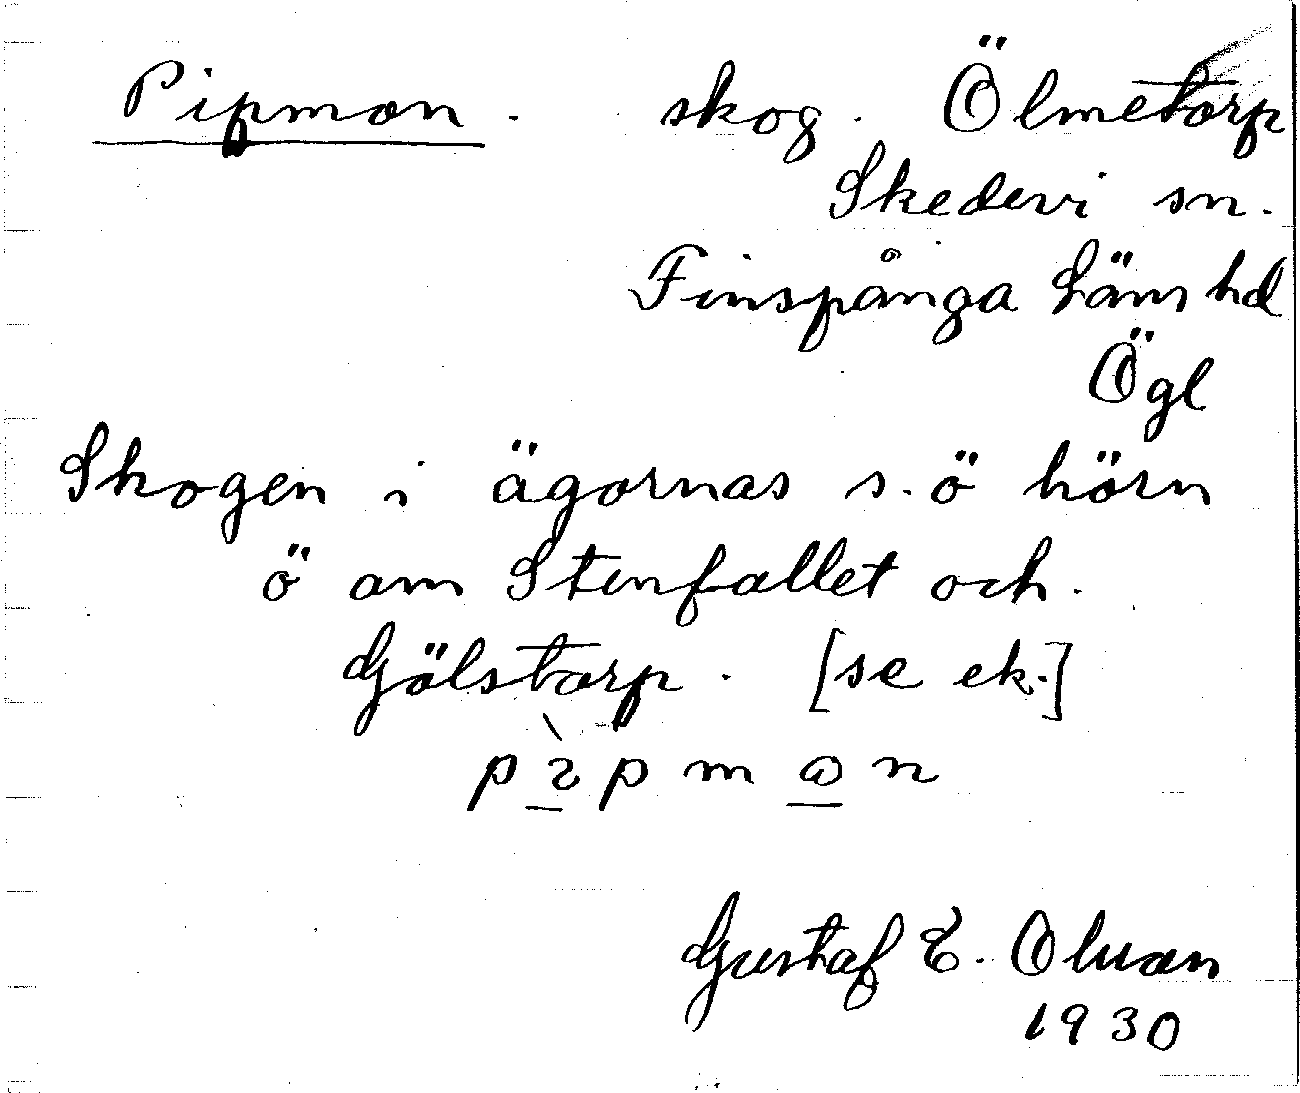 Pipmon. skog. Ölmetorp
Skedevi sn.
Finspånga läns hd
Ögl
Skogen i ägornas s.ö hörn
ö om Stenfallet och.
Gölstorp. [se ek.]
Gustaf E. Olsson
1930